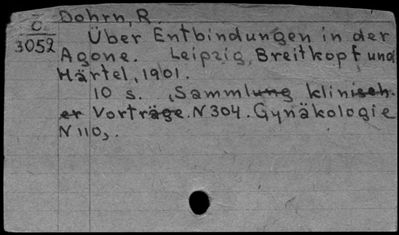 Dohrn, R.
Č
3052
Über Entbindungen in der
Agone. Leipzig, Breitkopf und
Härtel, 1901.
10 s. „Sammlung klinisch-
er Vorträge. N 304. Gynäkologie
N 110„.